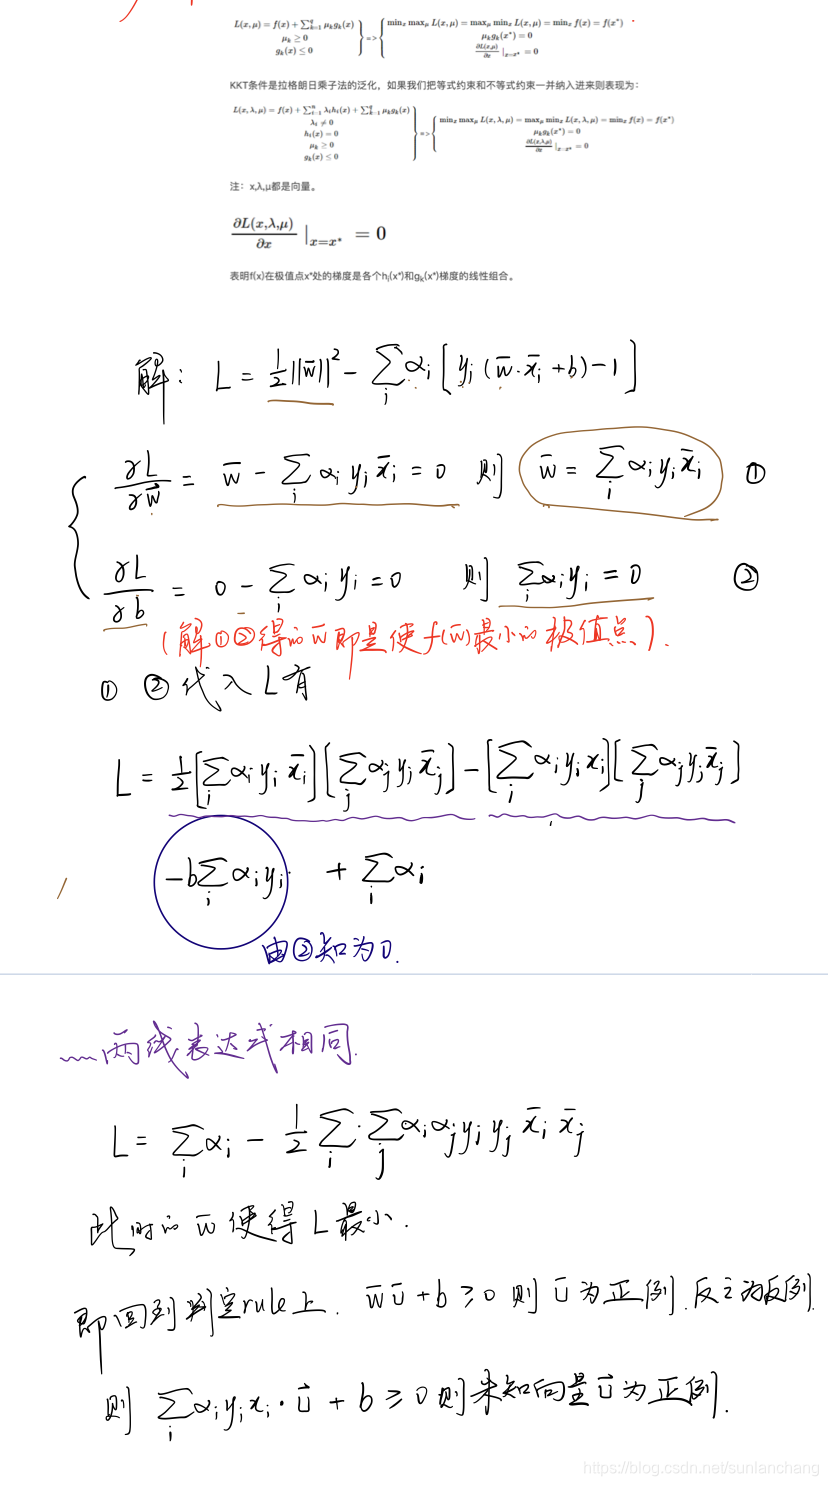 L(x, μ) = f(x) + ∑_{k=1}^{q} μ_k g_k(x)
μ_k ≥ 0
g_k(x) ≤ 0
} => {
min_x max_μ L(x, μ) = max_μ min_x L(x, μ) = min_x f(x) = f(x*)
μ_k g_k(x*) = 0
∂L(x,μ)/∂x |_{x=x*} = 0
KKT条件是拉格朗日乘子法的泛化，如果我们把等式约束和不等式约束一并纳入进来则表现为：
L(x, λ, μ) = f(x) + ∑_{i=1}^{n} λ_i h_i(x) + ∑_{k=1}^{q} μ_k g_k(x)
λ_i ≠ 0
h_i(x) = 0
μ_k ≥ 0
g_k(x) ≤ 0
} => {
min_x max_μ L(x, λ, μ) = max_μ min_x L(x, λ, μ) = min_x f(x) = f(x*)
μ_k g_k(x*) = 0
∂L(x,λ,μ)/∂x |_{x=x*} = 0
注：x,λ,μ都是向量。
∂L(x,λ,μ)/∂x |_{x=x*} = 0
表明f(x)在极值点x*处的梯度是各个h_i(x*)和g_k(x*)梯度的线性组合。
解： L = 1/2 ||w̄||² - ∑_i α_i [ y_i (w̄·x̄_i + b) - 1 ]
γL/γw⃗ = w̄ - ∑_i α_i y_i x̄_i = 0 则 w̄ = ∑_i α_i y_i x̄_i ①
γL/γb = 0 - ∑_i α_i y_i = 0 则 ∑_i α_i y_i = 0 ②
(解①②得的w̄即是使f(w̄)最小的极值点).
① ②代入L有
L = 1/2 [∑_i α_i y_i x̄_i] [∑_j α_j y_j x̄_j] - [∑_i α_i y_i x_i] [∑_j α_j y_j x̄_j]
- b∑_i α_i y_i + ∑_i α_i
由②知为0.
﹏两线表达式相同.
L = ∑_i α_i - 1/2 ∑_i·∑_j α_i α_j y_i y_j x̄_i x̄_j
此时的 w̄ 使得 L 最小.
即回到判定rule上. w̄ū + b ≥ 0 则 ū为正例.反之为反例.
则 ∑_i α_i y_i x_i · u⃗ + b ≥ 0 则未知向量u⃗为正例.
https://blog.csdn.net/sunlanchang